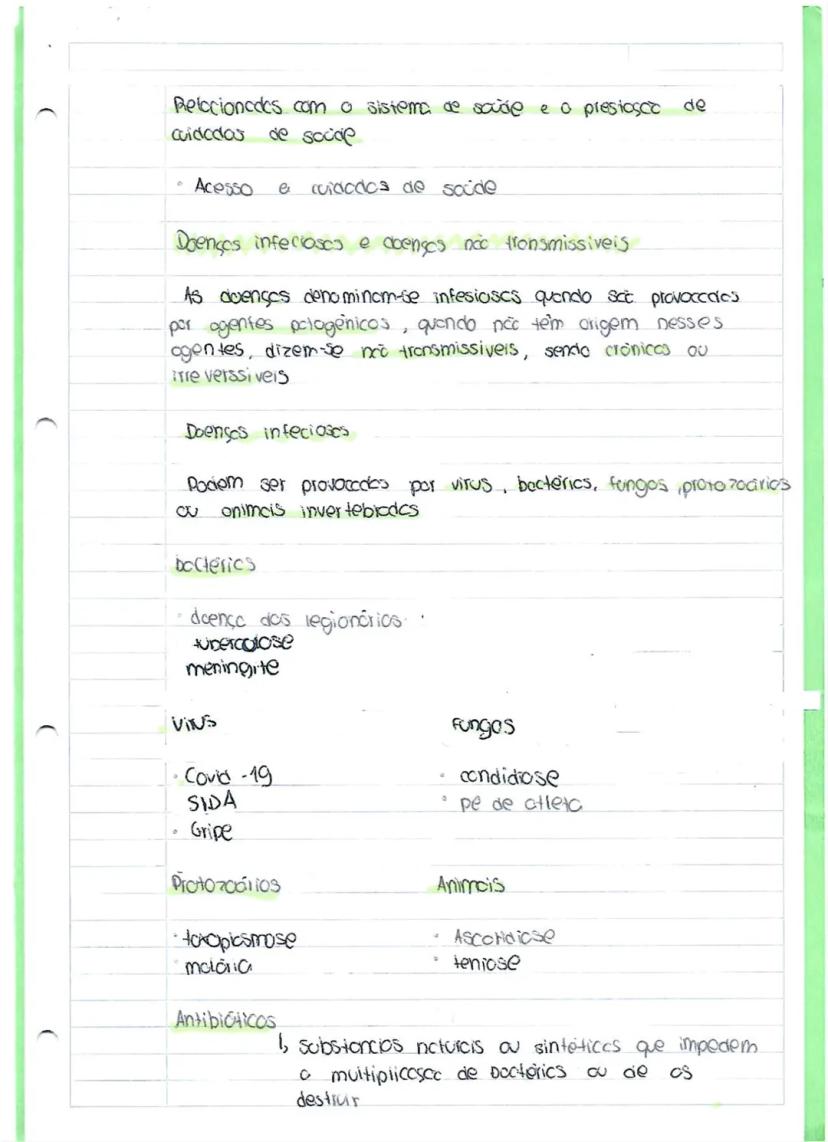 Relacionadas com o sistema de saúde e a prestação de
cuidados de saúde
• Acesso a cuidados de saúde
Doenças infeciosas e doenças não transmissiveis
As doenças denominam-se infesiosas quando são provocadas
por agentes patogénicos, quando não têm origem nesses
agentes, dizem-se não transmissiveis, sendo crónicas ou
irreverssiveis
Doenças infeciosas
Podem ser provocadas por virus, bactérias, fungos, protozoários
ou animais invertebrados
bactérias
• doença dos legionários
tubercolose
meningite
Virus
Fungos
• Covid -19
SIDA
• Gripe
• candidiose
• pé de atleta
Protozoários
Animais
• toxoplasmose
• malária
• Ascaridiose
• teniose
Antibióticos
↳ substancias naturais ou sintéticas que impedem
a multiplicação de bactérias ou de as
destruir